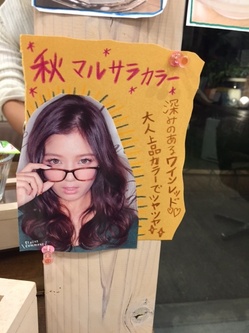 秋 マルサラカラー
深みのあるワインレッド♡♡
大人上品カラーでツヤツヤ☆☆